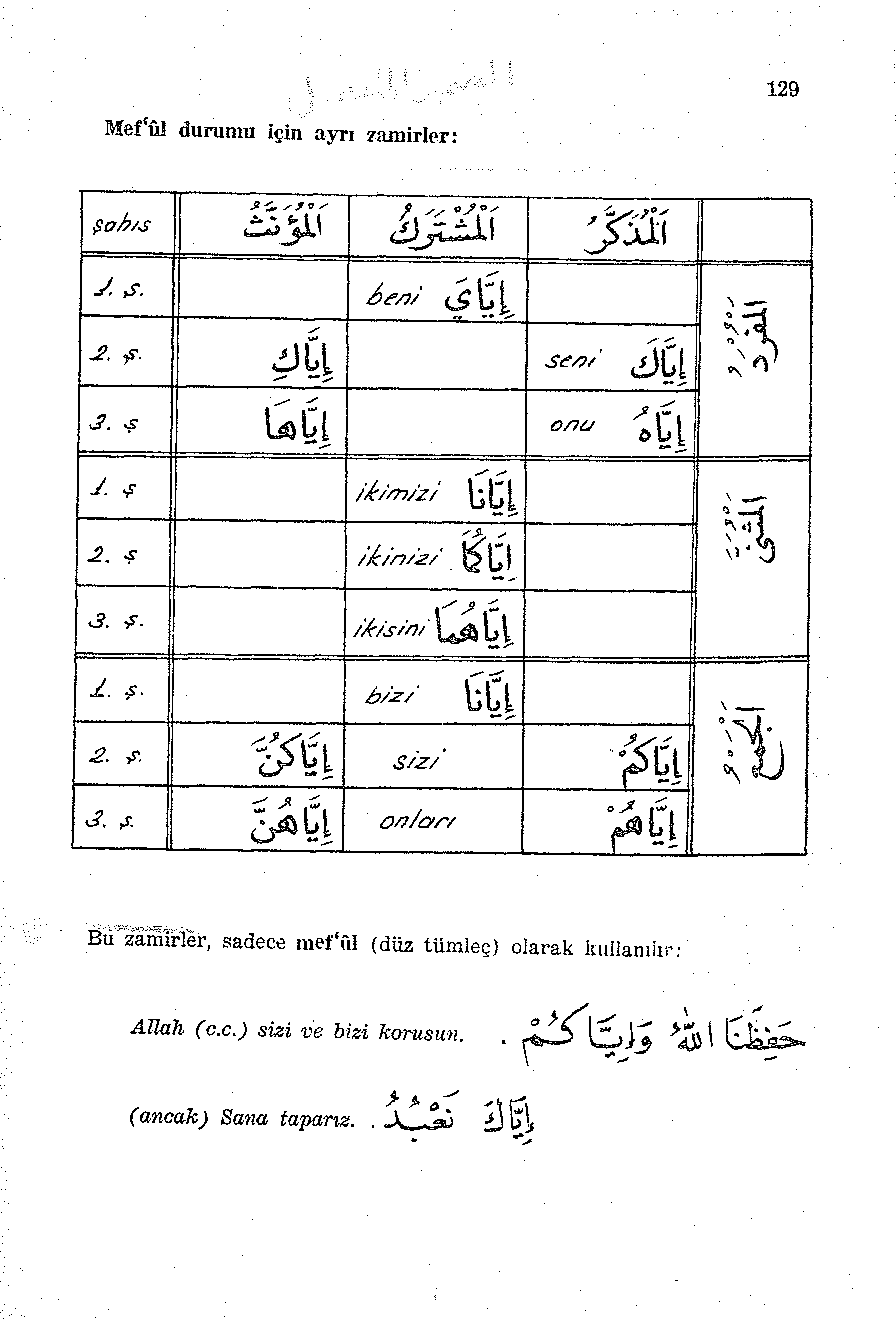 129
Mef'ûl durumu için ayrı zamirler:
şahıs اَلْمُؤَنَّثُ اَلْمُشْتَرَكُ اَلْمُذَكَّرُ
1. ş. beni إِيَّايَ اَلْمُفْرَدُ
2. ş. إِيَّاكِ seni إِيَّاكَ
3. ş إِيَّاهَا onu إِيَّاهُ
1. ş ikimizi إِيَّانَا اَلْمُثَنَّى
2. ş ikinizi إِيَّاكُمَا
3. ş. ikisini إِيَّاهُمَا
1. ş. bizi إِيَّانَا اَلْجَمْعُ
2. ş. إِيَّاكُنَّ sizi إِيَّاكُمْ
3. ş. إِيَّاهُنَّ onları إِيَّاهُمْ
Bu zamirler, sadece mef'ûl (düz tümleç) olarak kullanılır:
Allah (c.c.) sizi ve bizi korusun. حَفِظَنَا اللّٰهُ وَإِيَّاكُمْ .
(ancak) Sana taparız. إِيَّاكَ نَعْبُدُ .